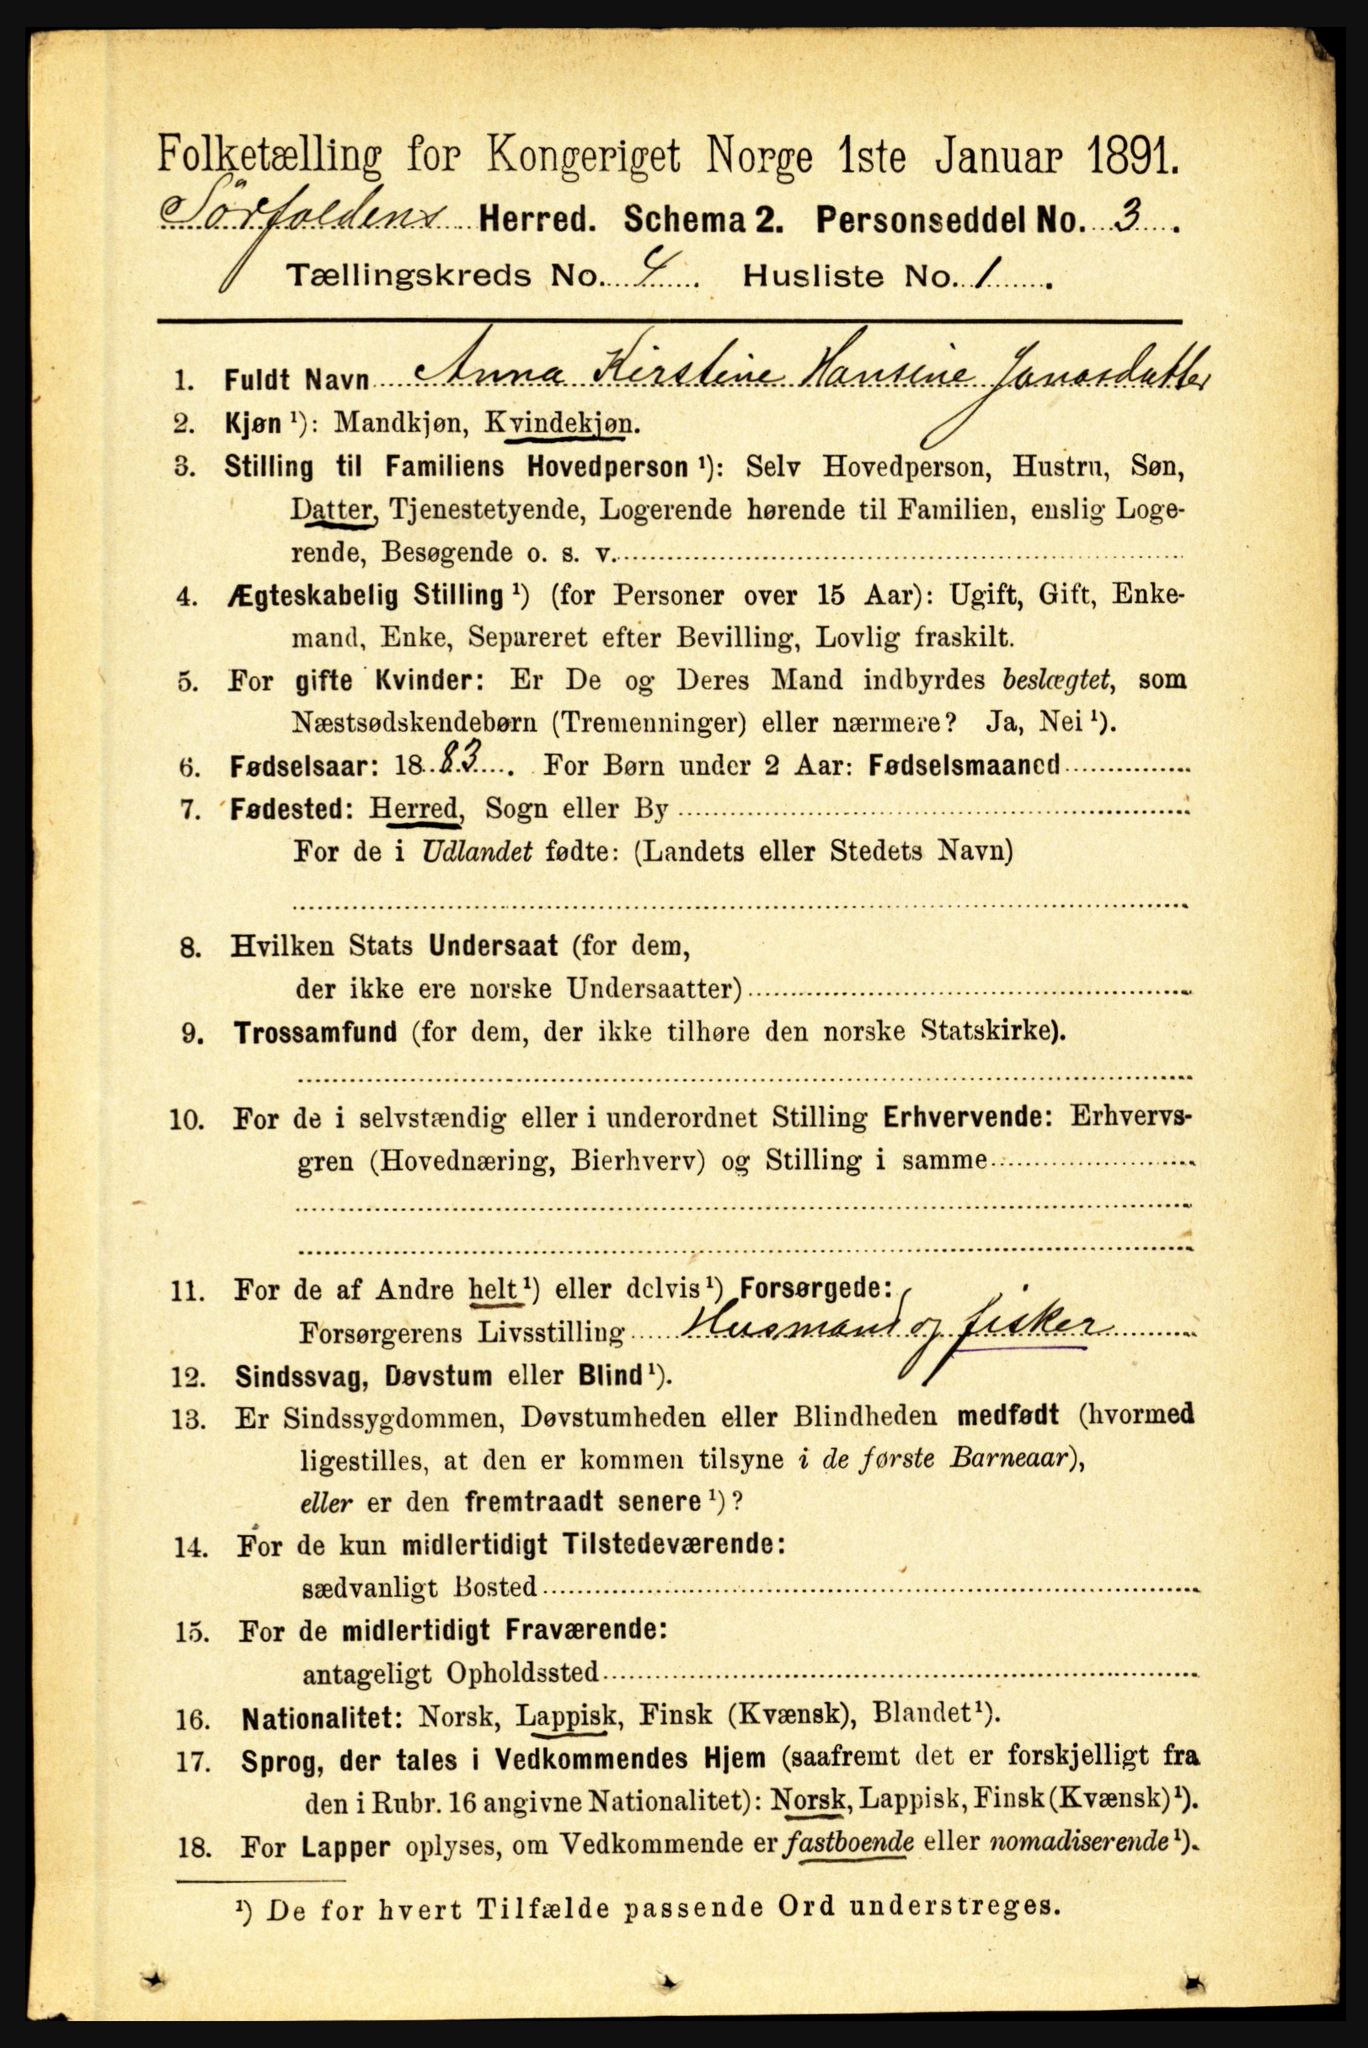 Folketælling for Kongeriget Norge 1ste Januar 1891.
Sørfoldens Herred. Schema 2. Personseddel No. 3.
Tællingskreds No. 4. Husliste No. 1.
1. Fuldt Navn Anna Kirstine Hansine Jonasdatter
2. Kjøn ¹): Mandkjøn, Kvindekjøn.
3. Stilling til Familiens Hovedperson ¹): Selv Hovedperson, Hustru, Søn,
Datter, Tjenestetyende, Logerende hørende til Familien, enslig Loge-
rende, Besøgende o. s. v.
4. Ægteskabelig Stilling ¹) (for Personer over 15 Aar): Ugift, Gift, Enke-
mand, Enke, Separeret efter Bevilling, Lovlig fraskilt.
5. For gifte Kvinder: Er De og Deres Mand indbyrdes beslægtet, som
Næstsødskendebørn (Tremenninger) eller nærmere? Ja, Nei ¹).
6. Fødselsaar: 1883. For Børn under 2 Aar: Fødselsmaaned
7. Fødested: Herred, Sogn eller By
For de i Udlandet fødte: (Landets eller Stedets Navn)
8. Hvilken Stats Undersaat (for dem,
der ikke ere norske Undersaatter)
9. Trossamfund (for dem, der ikke tilhøre den norske Statskirke).
10. For de i selvstændig eller i underordnet Stilling Erhvervende: Erhvervs-
gren (Hovednæring, Bierhverv) og Stilling i samme
11. For de af Andre helt ¹) eller delvis ¹) Forsørgede:
Forsørgerens Livsstilling Husmand og fisker
12. Sindssvag, Døvstum eller Blind ¹).
13. Er Sindssygdommen, Døvstumheden eller Blindheden medfødt (hvormed
ligestilles, at den er kommen tilsyne i de første Barneaar),
eller er den fremtraadt senere ¹)?
14. For de kun midlertidigt Tilstedeværende:
sædvanligt Bosted
15. For de midlertidigt Fraværende:
antageligt Opholdssted
16. Nationalitet: Norsk, Lappisk, Finsk (Kvænsk), Blandet ¹).
17. Sprog, der tales i Vedkommendes Hjem (saafremt det er forskjelligt fra
den i Rubr. 16 angivne Nationalitet): Norsk, Lappisk, Finsk (Kvænsk) ¹).
18. For Lapper oplyses, om Vedkommende er fastboende eller nomadiserende ¹).
¹) De for hvert Tilfælde passende Ord understreges.